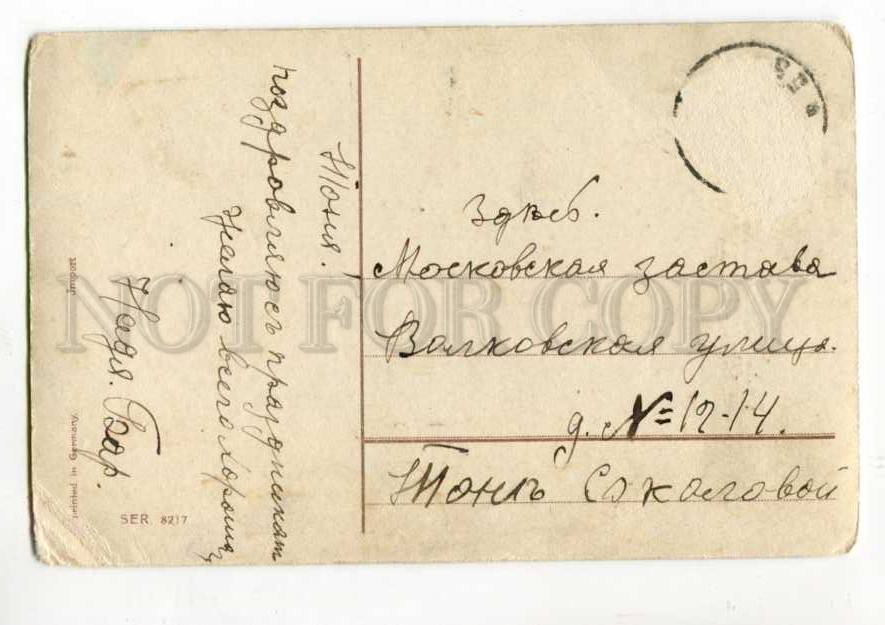 Тоня.
поздровляюсъ праздникам
желаю всего хороша,
Надя. Бар.
Здѣсь.
Московская застава
Волковская улица.
д. №=12-14.
Тонѣ Соколовой
Import
printed in Germany.
SER. 8217
NOT FOR COPY